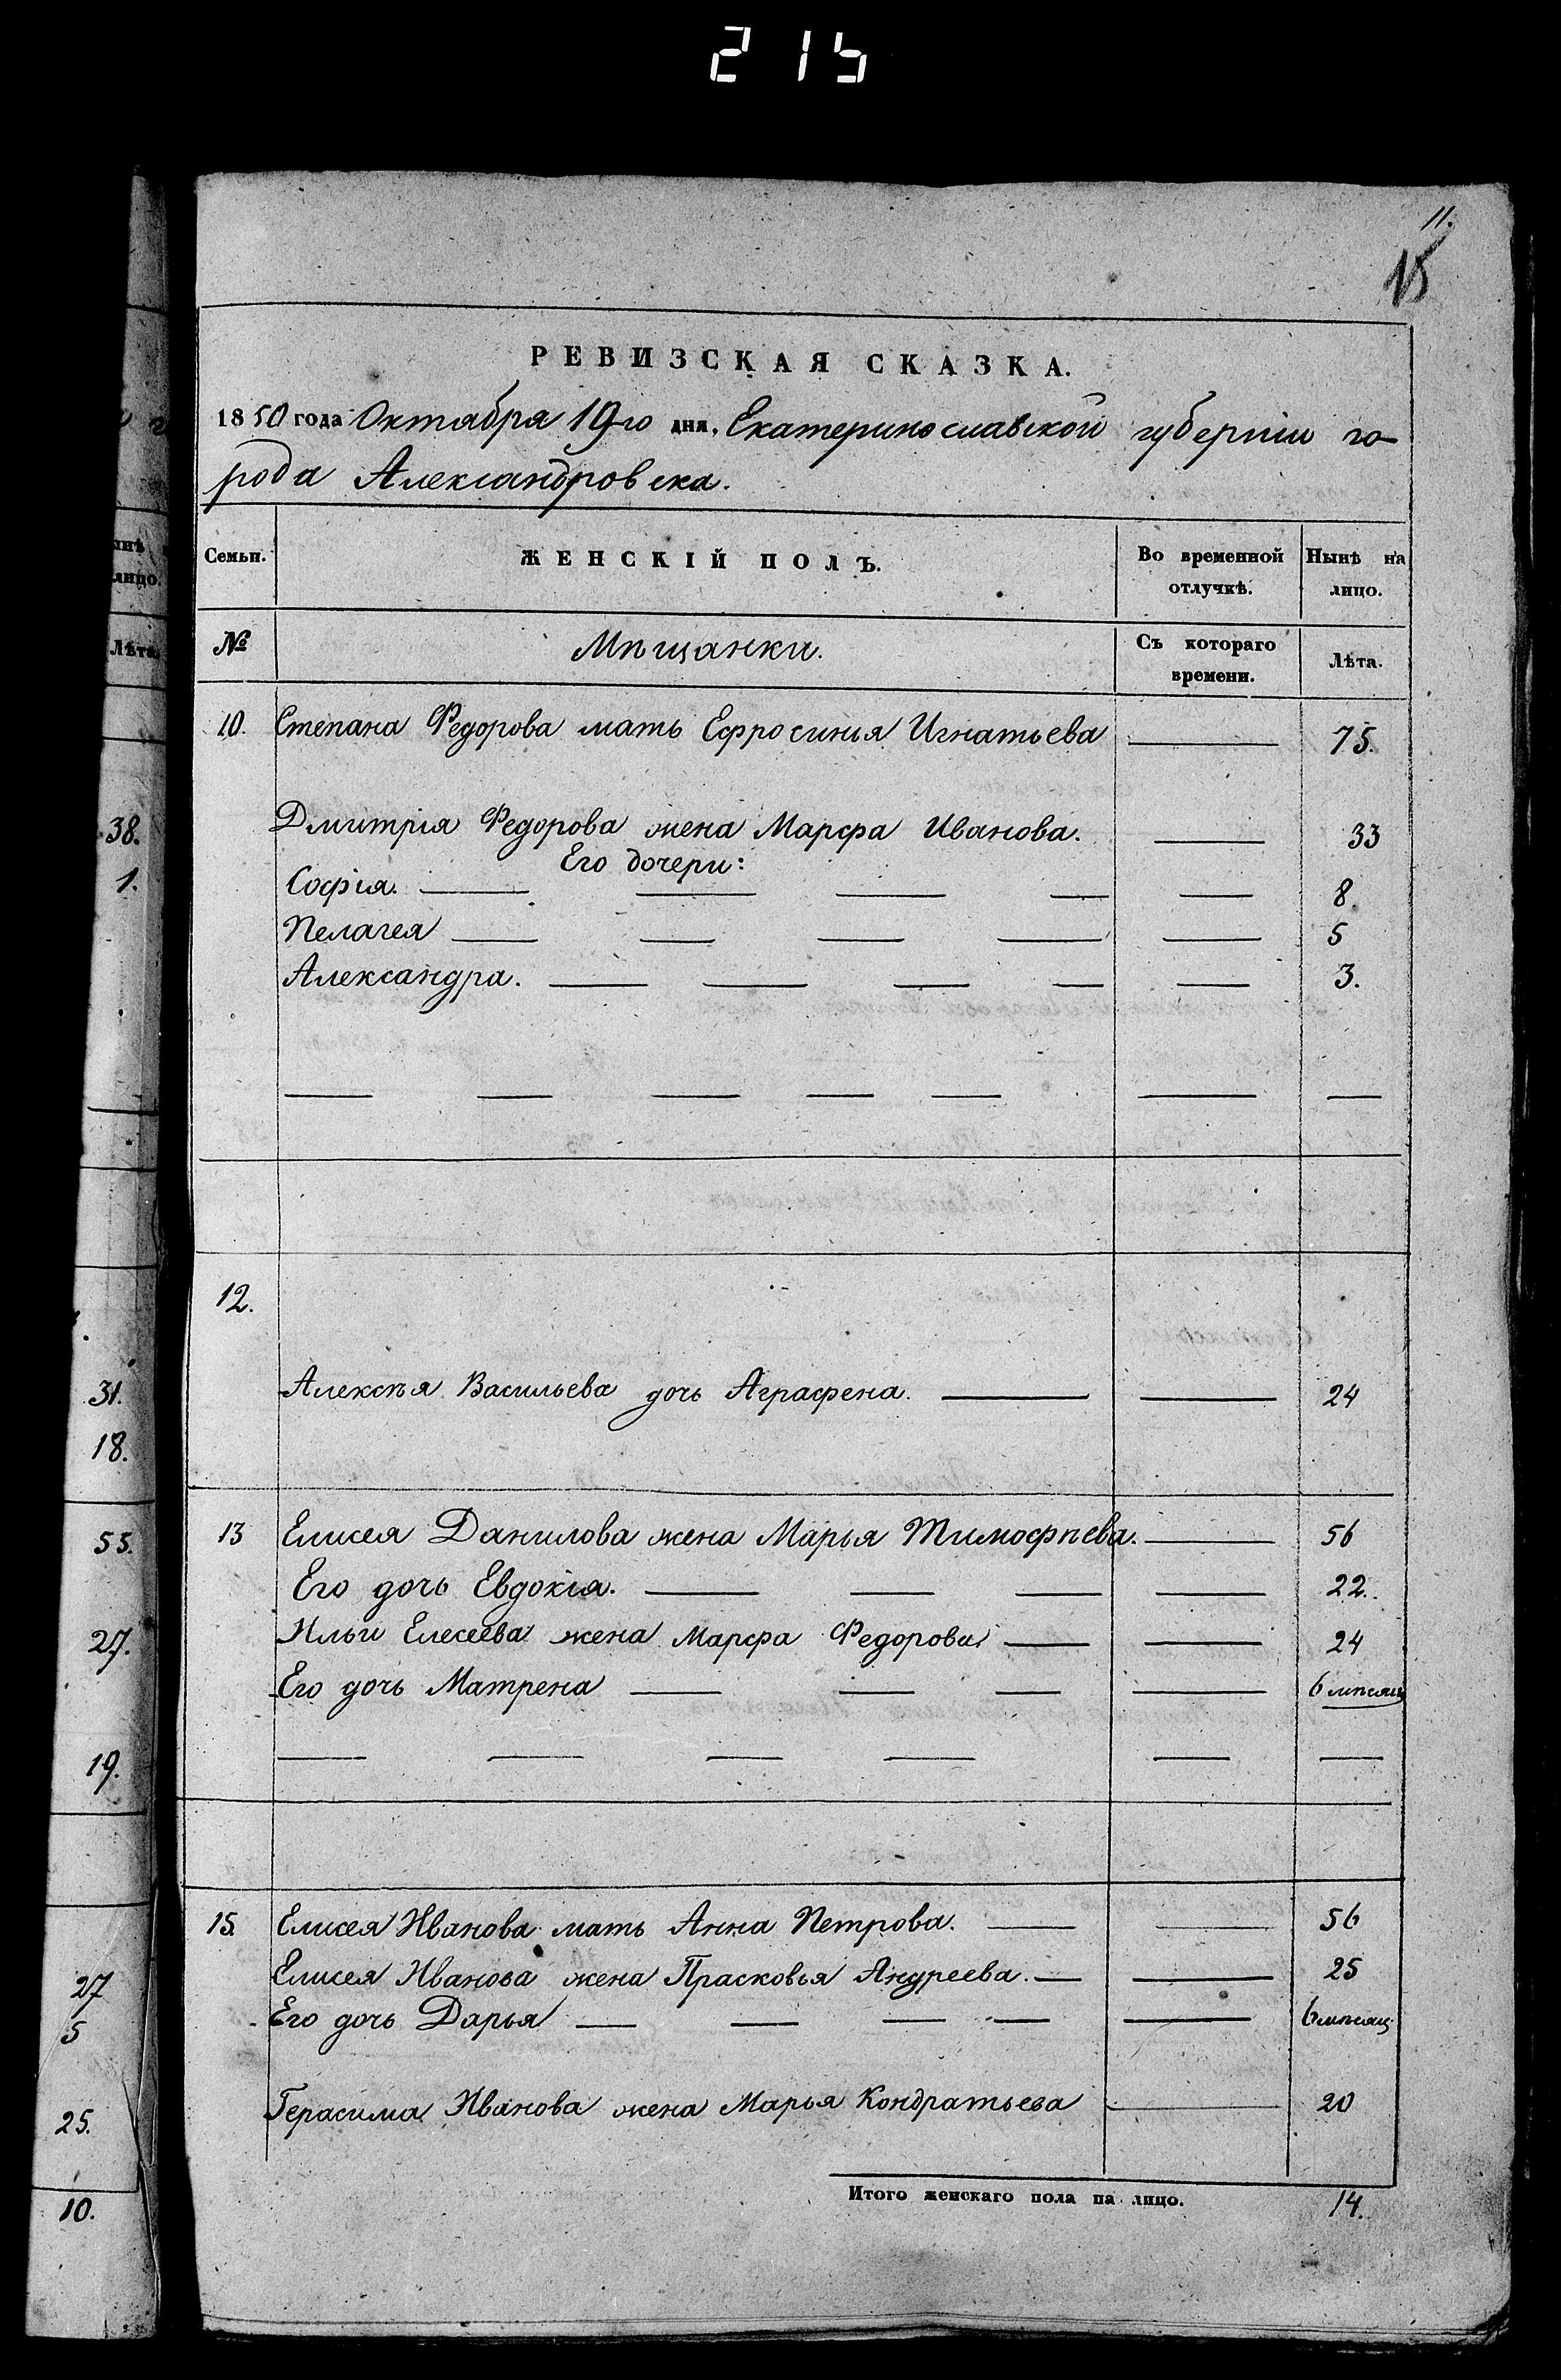 215
11.
15
РЕВИЗСКАЯ СКАЗКА.
1850 года Октября 19го дня, Екатеринославской губерніи го-
рода Александровска.
Семьи. ЖЕНСКІЙ ПОЛЪ. Во временной отлучкѣ. Нынѣ на лицо.
№ Мѣщанки. Съ котораго времени. Лѣта.
10. Степана Федорова мать Ефросинья Игнатьева — 75.
Дмитрія Федорова жена Марфа Иванова. — 33
Его дочери:
Софія. — — — — — 8.
Пелагея — — — — — 5
Александра. — — — — — 3.
— — — — — — —
12.
Алексѣя Васильева дочь Аграфена. — — 24
13 Елисея Данилова жена Марья Тимофѣева. — 56
Его дочь Евдокія. — — — — 22.
Ильи Елесеева жена Марфа Федорова. — — 24
Его дочь Матрена — — — — 6 мѣсяц
— — — — — —
15. Елисея Иванова мать Анна Петрова. — — 56
Елисея Иванова жена Прасковья Андреева. — — 25
Его дочь Дарья — — — — — 6 мѣсяц.
Герасима Иванова жена Марья Кондратьева — 20
Итого женскаго пола на лицо. 14.
ынѣ
лицо.
Лѣта.
38.
1.
31.
18.
55.
27.
19.
27
5
25.
10.